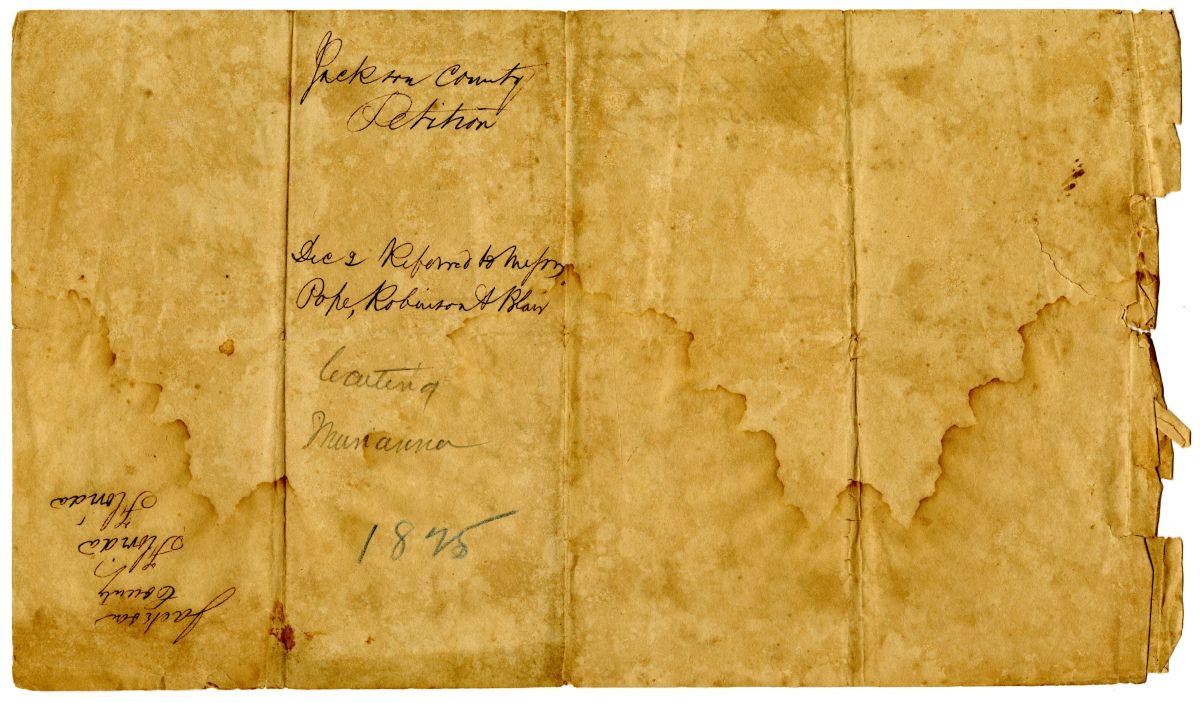 Jackson County
Petition
Dec 2 Referred to Messrs
Pope, Robinson & Blair
Marianna
1825
Jackson
County
Florida
Florida